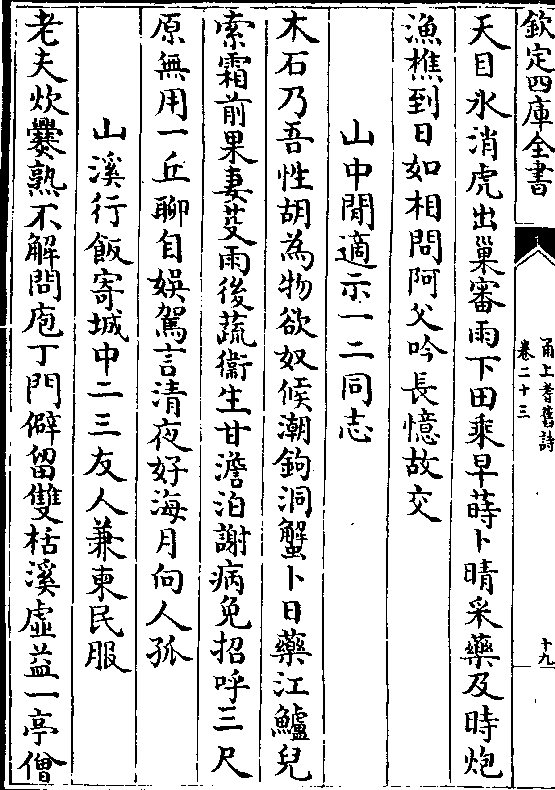 欽定四庫全書
甬上耆舊詩
卷二十三
十九
天目氷消虎出巢審雨下田乘早蒔卜晴采藥及時炮
漁樵到日如相問阿父吟長憶故交
山中閒適示一二同志
木石乃吾性胡為物欲奴候潮鉤洞蟹卜日藥江鱸兒
索霜前果妻芟雨後蔬衞生甘澹泊謝病免招呼三尺
原無用一丘聊自娱駕言清夜好海月向人孤
山溪行飯寄城中二三友人兼柬民服
老夫炊㸑熟不解問庖丁門僻留雙栝溪虚益一亭僧